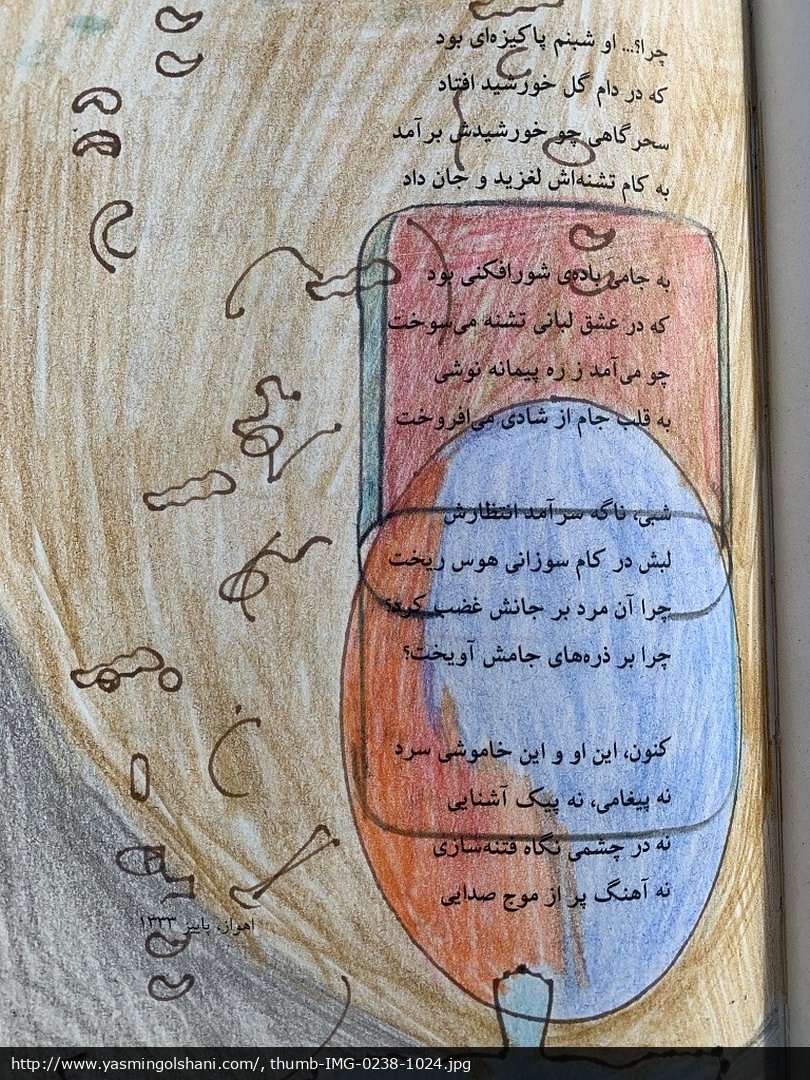 چرا؟... او شبنم پاکیزه‌ای بود
که در دام گل خورشید افتاد
سحرگاهی چو خورشیدش برآمد
به کام تشنه‌اش لغزید و جان داد
به جامی باده‌ی شورافکنی بود
که در عشق لبانی تشنه می‌سوخت
چو می‌آمد ز ره پیمانه نوشی
به قلب جام از شادی می‌افروخت
شبی، ناگه سرآمد انتظارش
لبش در کام سوزانی هوس ریخت
چرا آن مرد بر جانش غضب کرد؟
چرا بر ذره‌های جامش آویخت؟
کنون، این او و این خاموشی سرد
نه پیغامی، نه پیک آشنایی
نه در چشمی نگاه فتنه‌سازی
نه آهنگ پر از موج صدایی
اهواز، پاییز ۱۳۳۳
http://www.yasmingolshani.com/, thumb-IMG-0238-1024.jpg